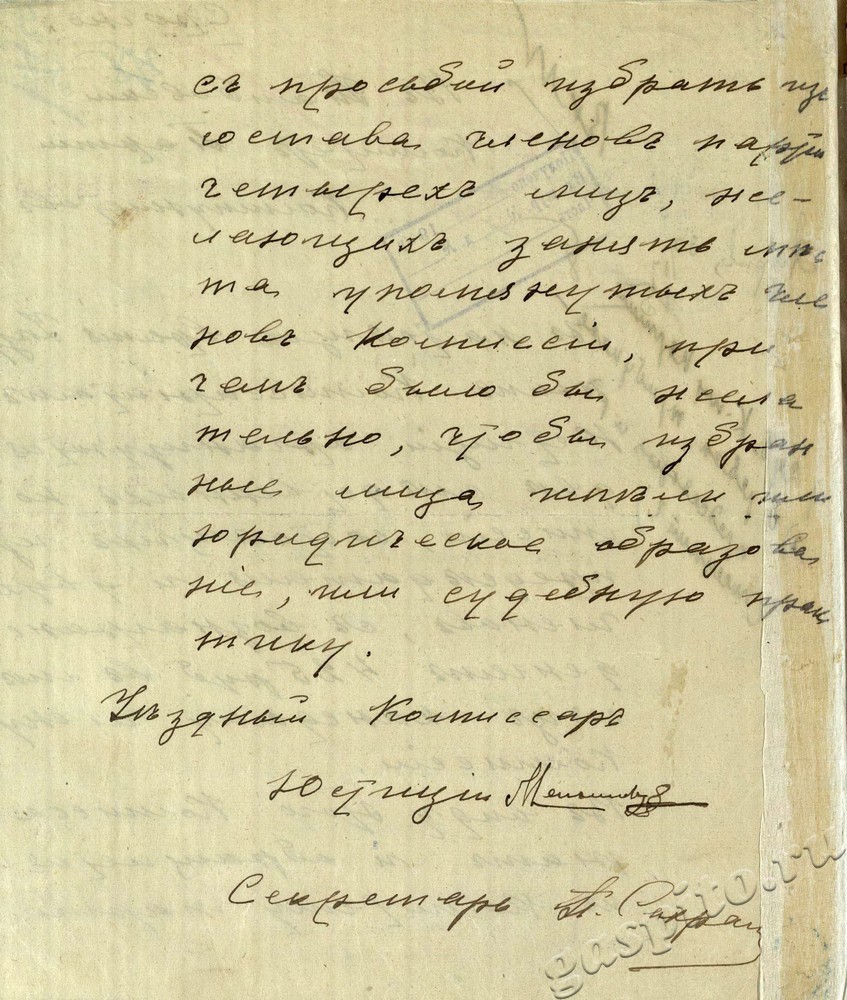 съ просьбой избрать из
состава членовъ парті
четырехъ лицъ, же-
лающихъ занять мѣс
та упомянутыхъ чле
новъ Комиссіи, при
чемъ было бы жела
тельно, чтобы избран
ные лица имѣли или
юридическое образова
ніе, или судебную прак
тику.
Уѣздный Комиссаръ
Юстиціи
Секретарь
gaspito.ru